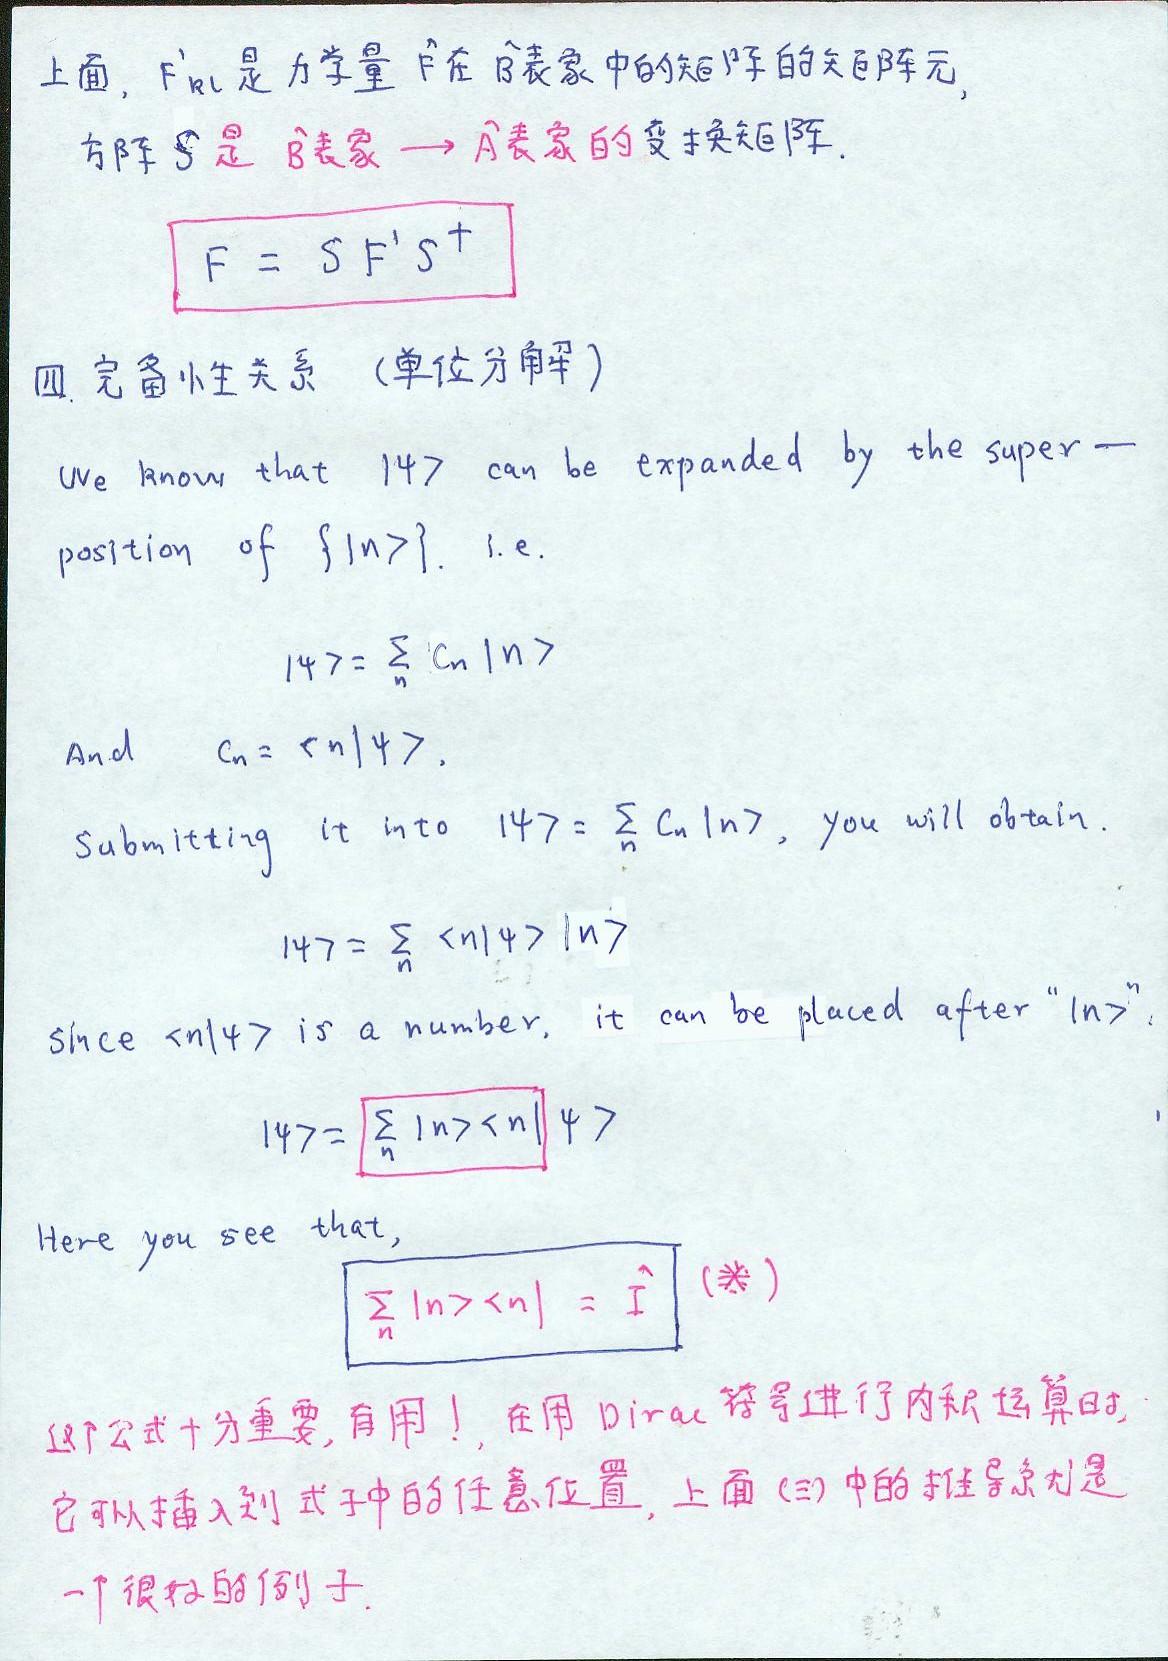 上面, F'kl 是力学量 F̂ 在 B̂表象中的矩阵的矩阵元,
方阵 S 是 B̂表象 → Â表象的变换矩阵.
F = S F' S†
四. 完备性关系 (单位分解)
We know that |ψ> can be expanded by the super—
position of {|n>}. i.e.
|ψ> = Σₙ Cₙ |n>
And Cₙ = <n|ψ>.
Submitting it into |ψ> = Σₙ Cₙ |n>, you will obtain.
|ψ> = Σₙ <n|ψ> |n>
Since <n|ψ> is a number, it can be placed after "|n>".
|ψ> = Σₙ |n><n|ψ>
Here you see that,
Σₙ |n><n| = Î (※)
这个公式十分重要, 有用!, 在用 Dirac 符号进行内积运算时,
它可以插入到式子中的任意位置, 上面 (三) 中的推导就是
一个很好的例子.